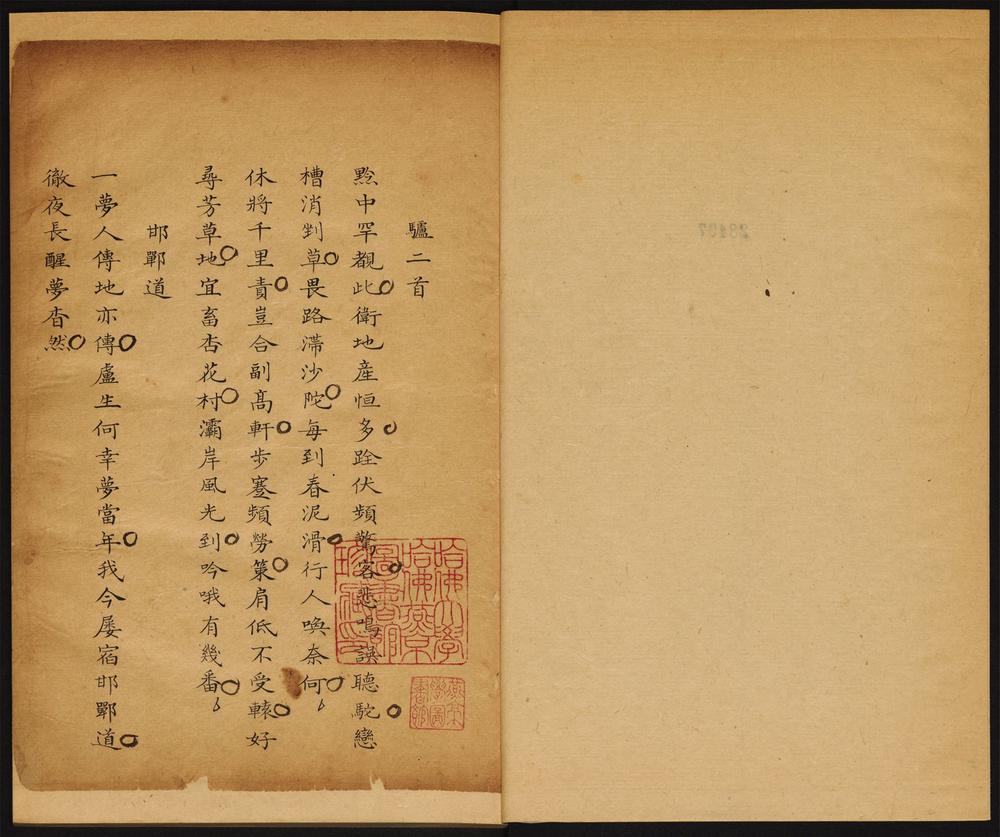 驢二首
黔中罕覩此衛地產恒多跧伏頻驚客悲鳴誤聽駝戀
槽消剉草畏路滯沙陀每到春泥滑行人喚奈何
休將千里責豈合副高軒步蹇頻勞策肩低不受轅好
尋芳草地宜畜杏花村灞岸風光到吟哦有幾番
邯鄲道
一夢人傳地亦傳盧生何幸夢當年我今屢宿邯鄲道
徹夜長醒夢杳然
哈佛大學
哈佛燕京
圖書館
珍藏印
燕京
學圖
書館
23407